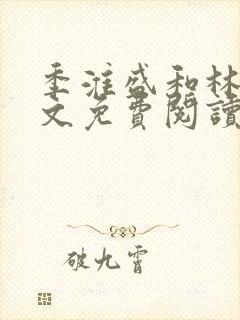 季淮盛和林
文免費閱讀
破九霄